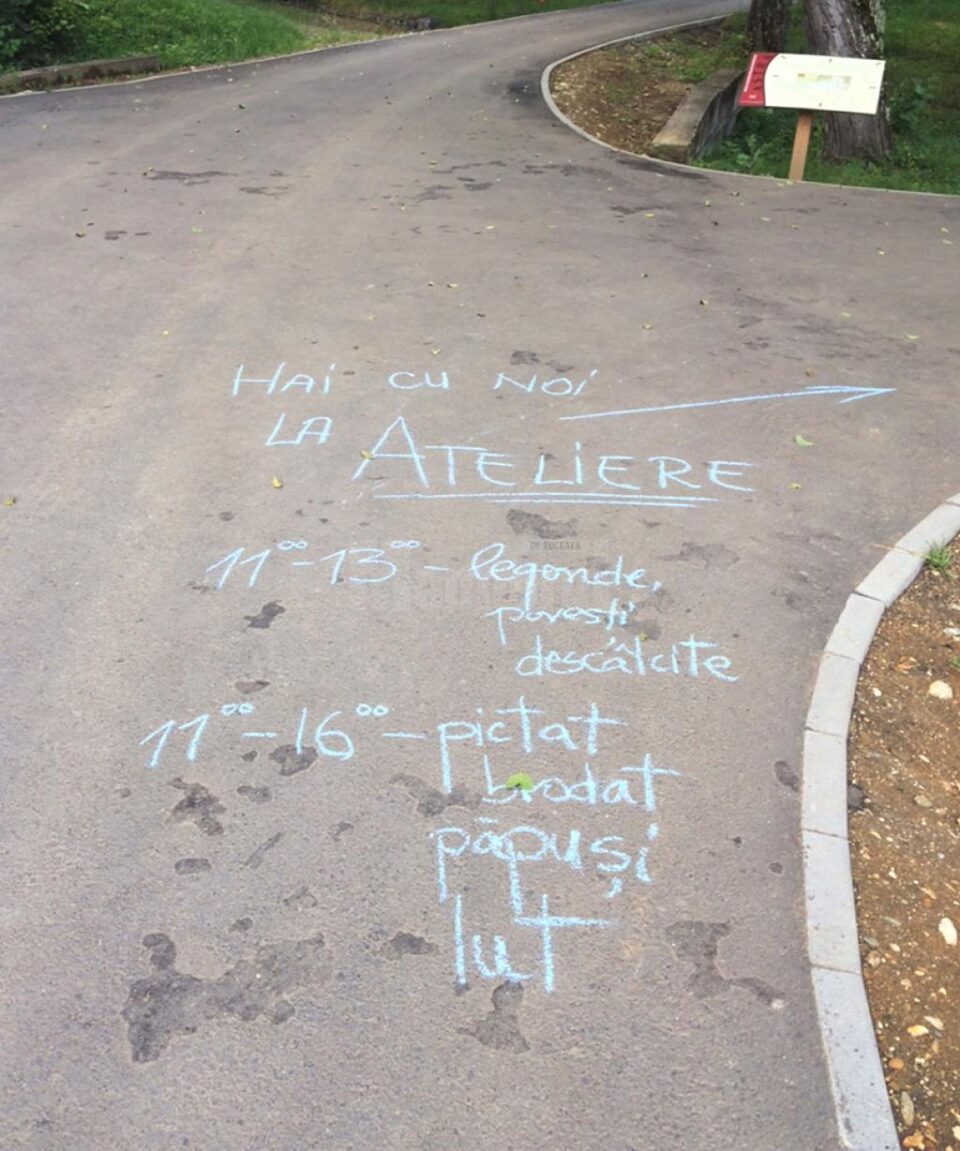 HAi CU NOi
LA ATELiERE
11⁰⁰-13⁰⁰ - legende,
povești
descâlcite
11⁰⁰-16⁰⁰ - pictat
brodat
păpuși
lut
DE SUCEAVA